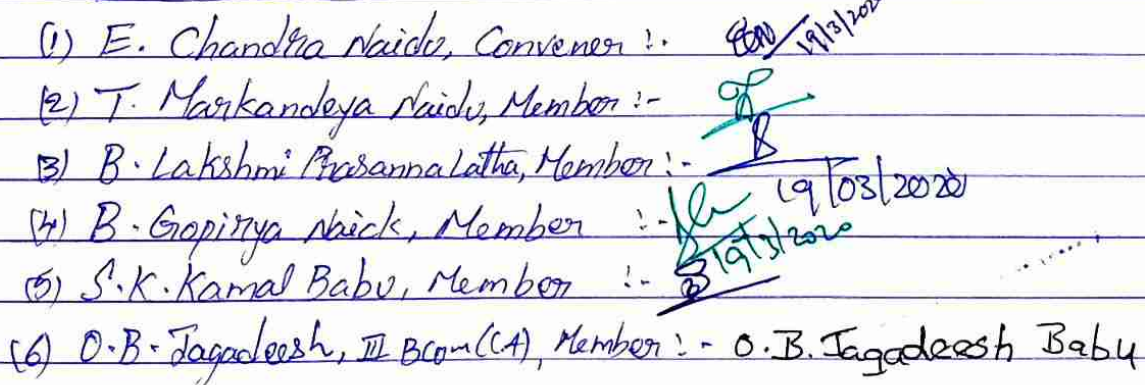 (1) E. Chandra Naidu, Convener :. 19/3/202
(2) T. Markandeya Naidu, Member :-
(3) B. Lakshmi Prasanna Latha, Member :-
19/03/2020
(4) B. Gopiyya Naick, Member :-
19/3/2020
(5) S.K. Kamal Babu, Member :-
(6) O.B. Jagadeesh, III BCom(CA), Member :- O.B. Jagadeesh Babu